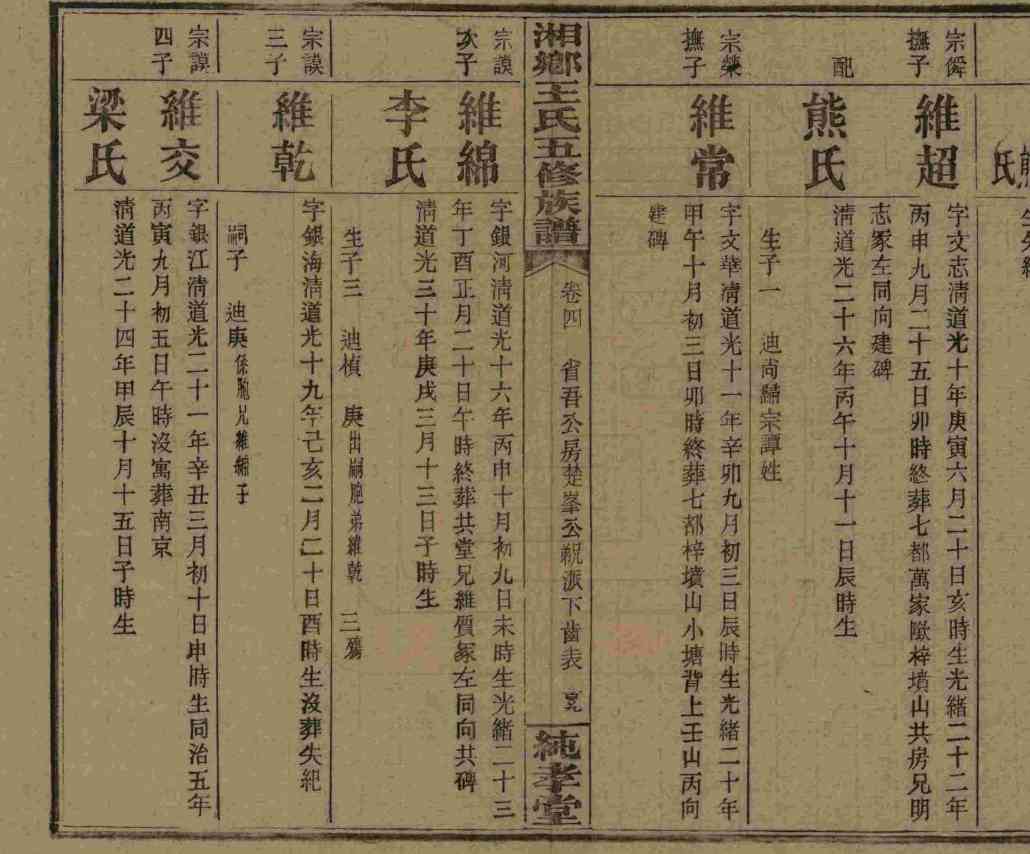 宗舜
撫子
維超
字文志清道光十年庚寅六月二十日亥時生光緒二十二年
丙申九月二十五日卯時終葬七都萬家墩梓墳山共房兄明
志冢左同向建碑
配
熊氏
清道光二十六年丙午十月十一日辰時生
生子一 迪尚歸宗譚姓
宗榮
撫子
維常
字文華清道光十一年辛卯九月初三日辰時生光緒二十年
甲午十月初三日卯時終葬七都梓墳山小塘背上壬山丙向
建碑
湘鄉王氏五修族譜
卷四 省吾公房楚峯公派下齒表
純孝堂
宗謨
次子
維綿
字銀河清道光十六年丙申十月初九日未時生光緒二十三
年丁酉正月二十日午時終葬共堂兄維價冢左同向共碑
李氏
清道光三十年庚戌三月十三日子時生
生子三 迪楨 庚出嗣胞弟維乾 三殤
宗謨
三子
維乾
字銀海清道光十九年己亥二月二十日酉時生沒葬失紀
嗣子 迪庚係胞兄維綿子
宗謨
四子
維交
字銀江清道光二十一年辛丑三月初十日申時生同治五年
丙寅九月初五日午時沒寓葬南京
梁氏
清道光二十四年甲辰十月十五日子時生